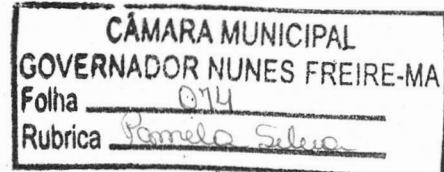 CÂMARA MUNICIPAL
GOVERNADOR NUNES FREIRE-MA
Folha 074
Rubrica Pamela Silva